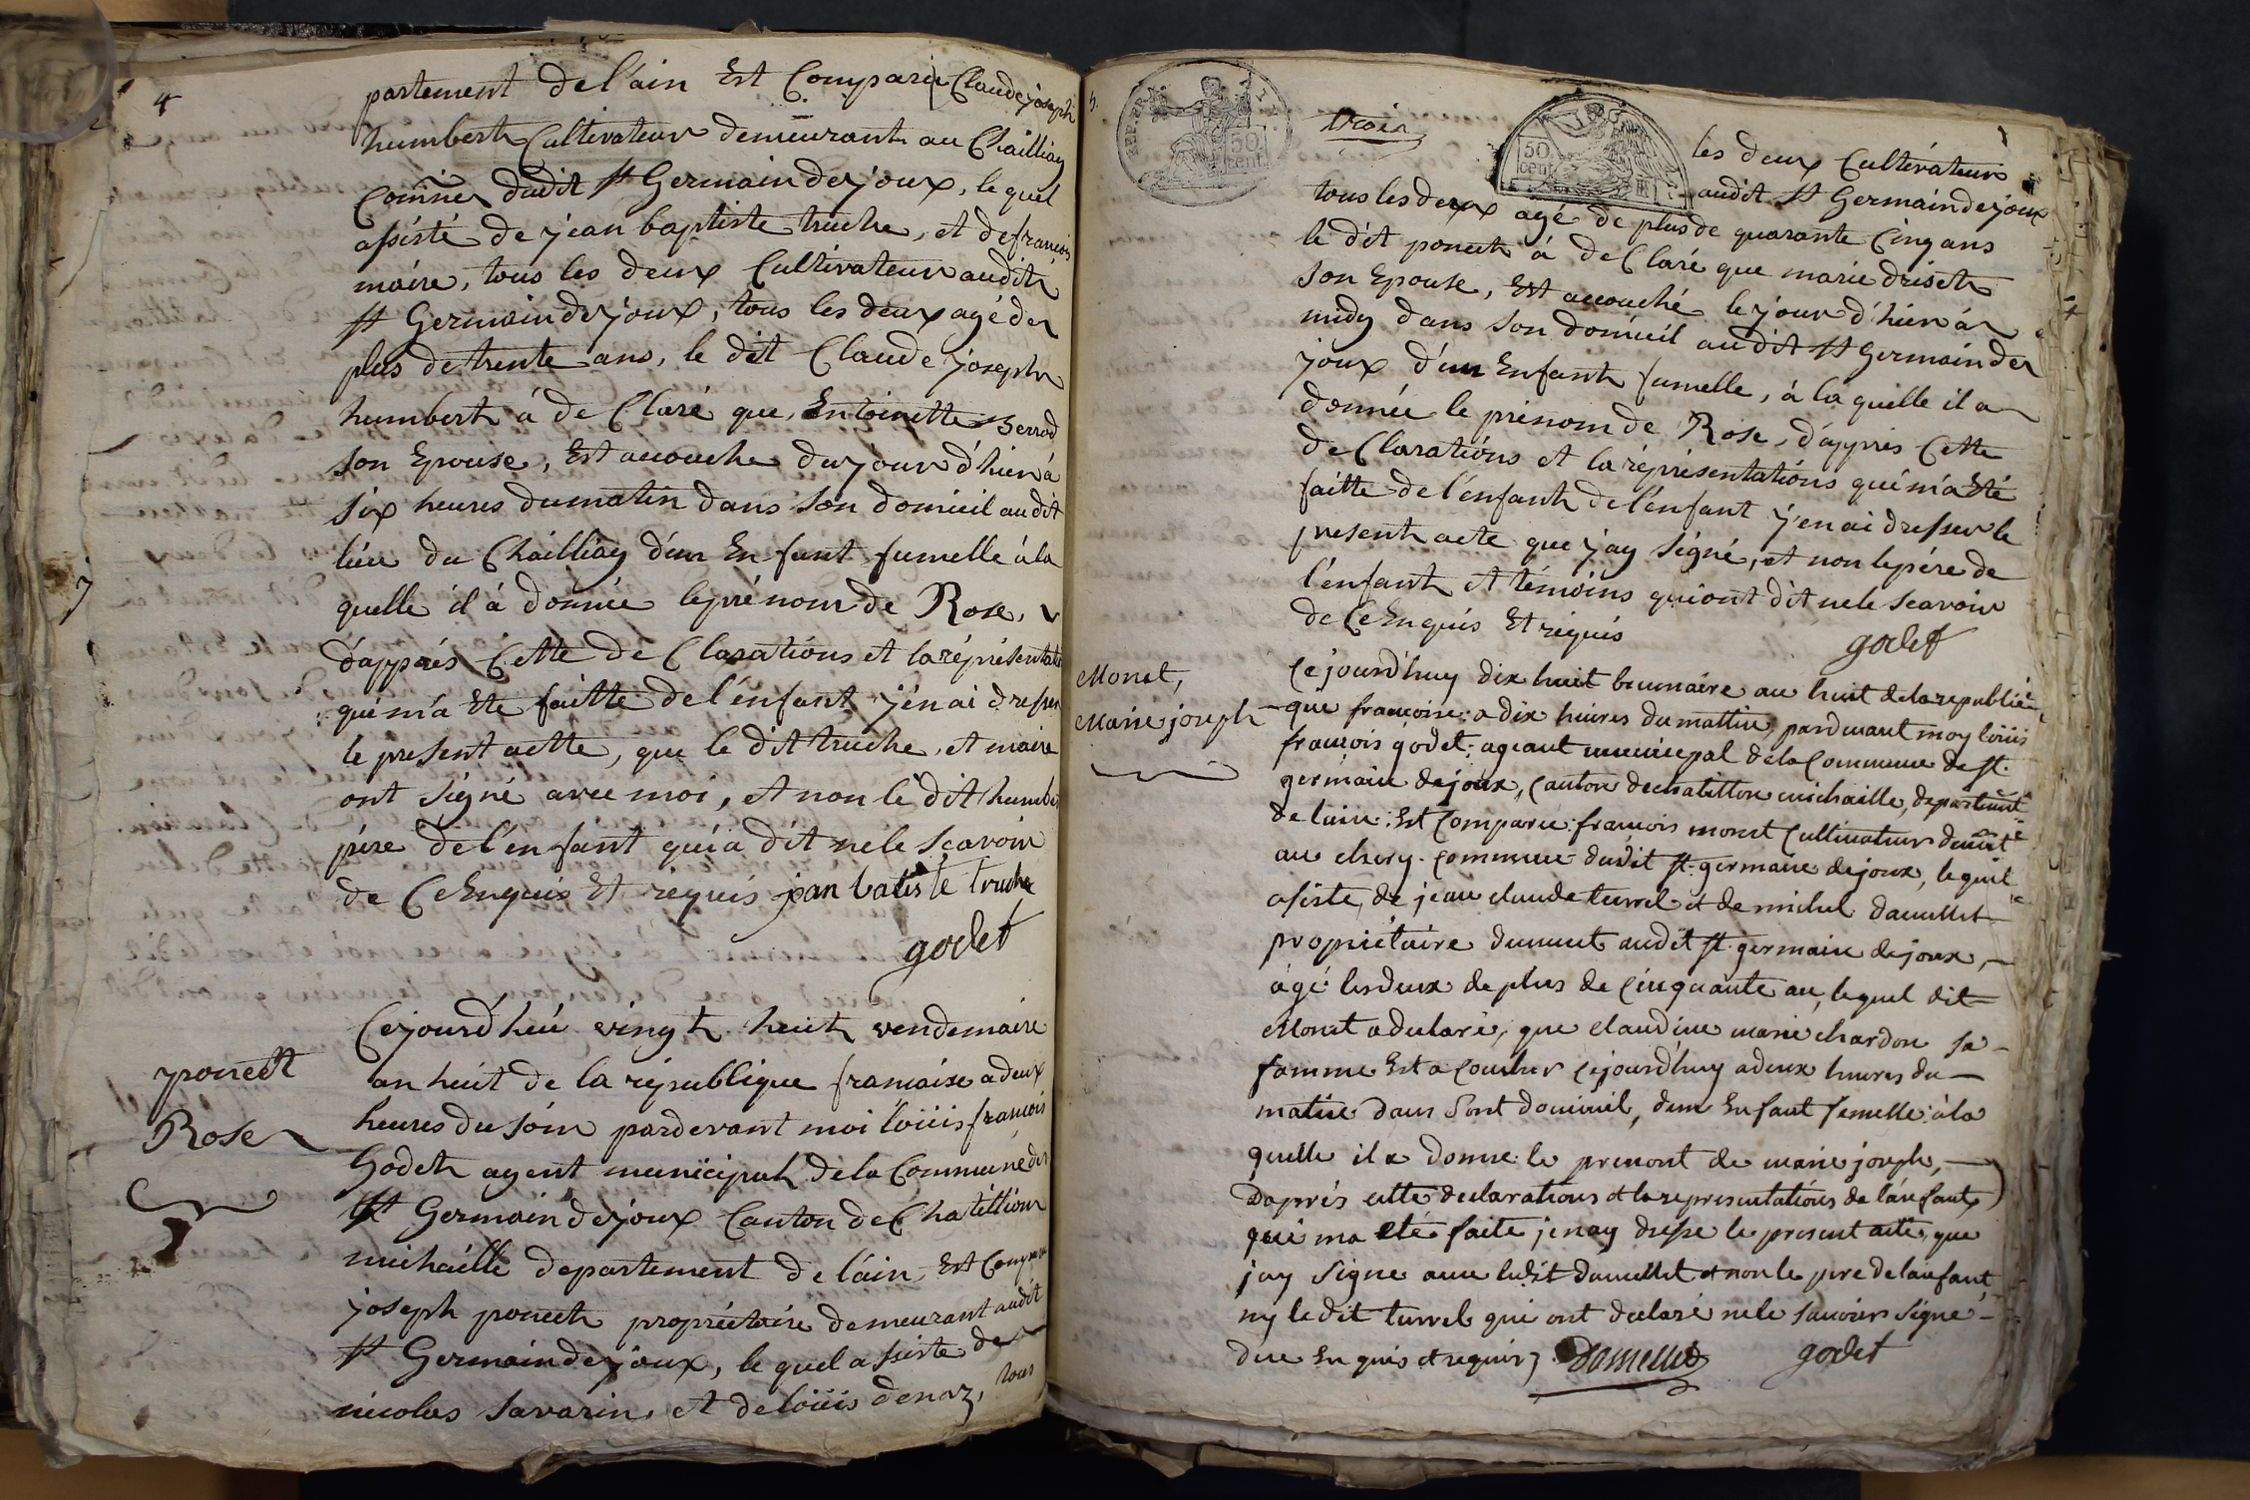 4
partement de l'ain Est Comparu Claude joseph
humbert Cultivateur demeurant au Chailliay
Comne dudit st Germain de joux, le quel
assisté de jean baptiste truche, et de francois
maire, tous les deux Cultivateur audit
st Germain de joux, tous les deux agé de
plus de trente ans, le dit Claude joseph
humbert á de Claré que Entoinette
son Epouse, Est accouche du jour d'hier á
six heures du matin dans son domicil au dit
lieu du Chailliay d'un Enfant fumelle á la
quelle il á donnée le prénom de Rose,
d'apprés Cette de Clarations et la réprésentati
qui m'a Eté faitte de l'énfant j'én ai dresser
le present actte, que le dit truche, et maire
ont signé avec moi, et non le dit humber
pére de l'énfant qui a dit ne le scavoir
de Ce Enquis Et réquis jan batiste truche
godet
ponect
Rose
Cejourd'hui vingt huit vendemaire
an huit de la république francaise a deux
heures du soir pardevant moi loüis francois
Godet agent municipal de la Commune de
st Germain de joux Canton de Chatillion
michaille departement de l'ain, Est Comparu
joseph ponect propriétaire demeurant audit
st Germain de joux, le quel assisté de
nicolas savarin, et de loüis denaz, tous
5
REP. FRA.
50 cent
trois
50 cent
les deux Cultivateur
audit st Germain de joux
tous les deux agé de plus de quarante Cinq ans
le dit ponect á de Claré que marie
son Epouse, Est accouché le jour d'hier á
midy dans son domicil au dit st Germain de
joux d'un Enfant fumelle, á la quelle il a
donnée le prénom de Rose, d'appris Cette
de Clarations et la réprésentations qui m'a Eté
faitte de l'énfant de l'énfant j'en ai dresser le
present acte que j'ay signé, et non le pére de
l'énfant et témoins qui ont dit ne le scavoir
de Ce Enquis Et réquis
godet
Monet,
Marie joseph
Cejourd'huy dix huit brumaire an huit de la republi
que francoise: a dix heures du mattin, pardevant moy loüis
francois godet: ageant municipal de la Commune de st.
germain de joux, Canton de chatillon michaille, departement
de l'ain: Est Comparu: francois monet Cultivateur demt
au chery. Commune dudit st. germain de joux, lequel
asisté, de jean claude turrel et de michel damellet
propriétaire demeurt audit st. germain de joux,
ágé les deux de plus de Cinquante an, lequel dit
Monet a declaré, que claudine marie chardon sa
famme Est a Coucher Cejourd'huy a deux heures du
matin dans sont domicil, d'un Enfant femelle: á la
quelle il a donne: le prenont de marie joseph,
D'aprés cette declarations et la representations de l'anfant
qui ma eté faite j'en ay dresse le present acte, que
j'ay signe avec ledit damellet et non le pere de lanfant
ny le dit turrel qui ont declaré ne le savoir signe
dece En quis et requis
Damellet godet